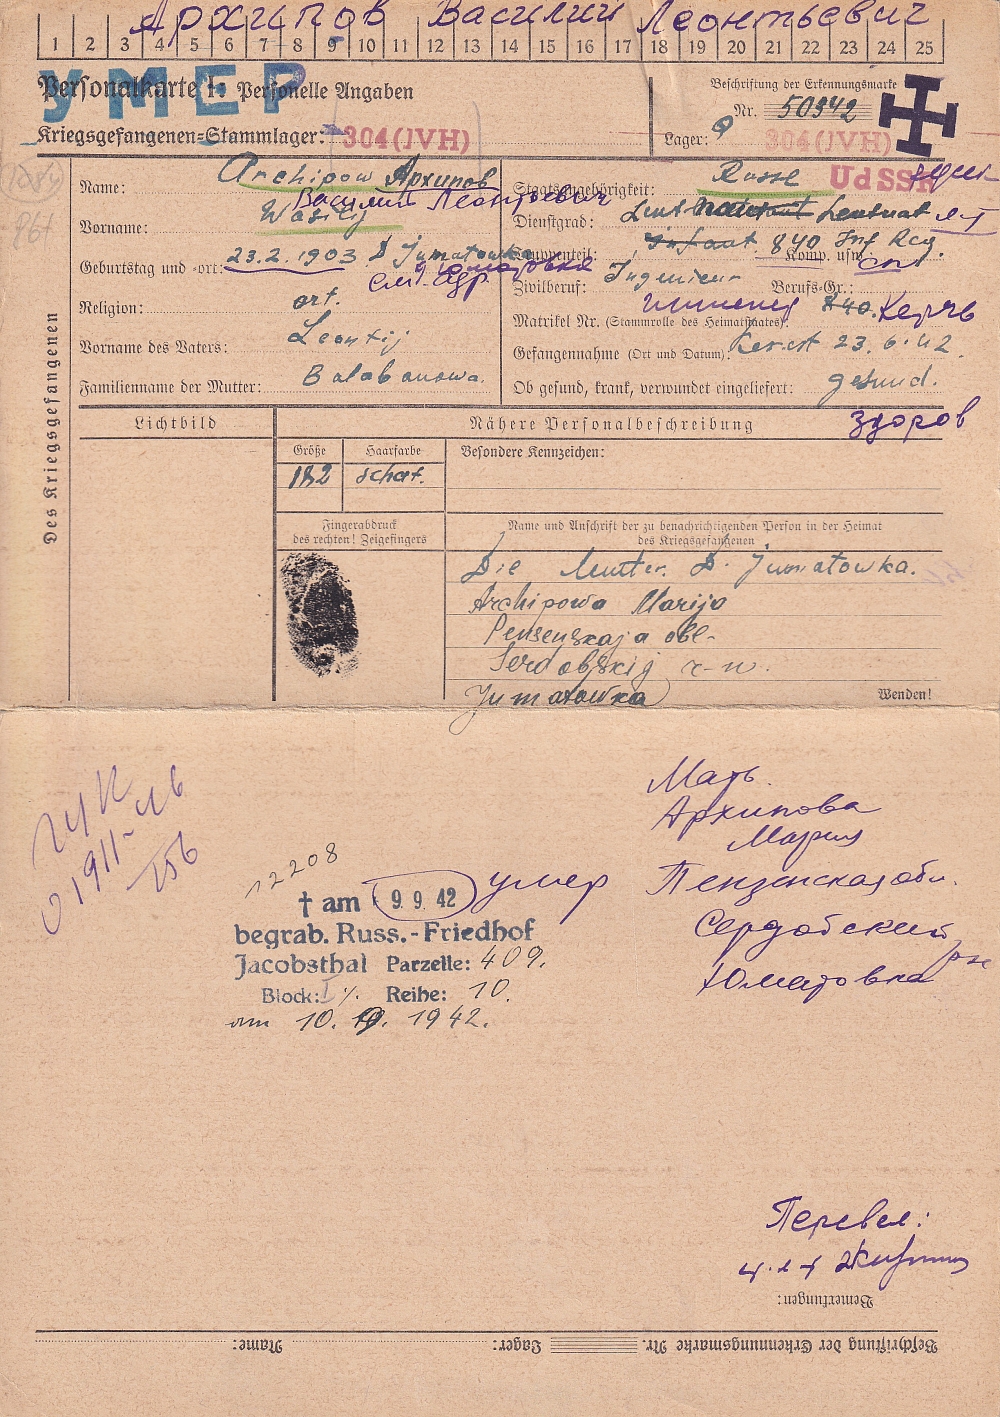 Архипов Василий Леонтьевич
1 2 3 4 5 6 7 8 9 10 11 12 13 14 15 16 17 18 19 20 21 22 23 24 25
УМЕР
Personalkarte I: Personelle Angaben
Kriegsgefangenen-Stammlager: 304(JVH)
Beschriftung der Erkennungsmarke
Nr. 50342
Lager: 304(JVH)
Des Kriegsgefangenen
Name: Archipow Архипов
Василий Леонтьевич
Vorname: Wasilij
Geburtstag und -ort: 23.2.1903 D Jumatowka
Юматовка
См. адр.
Religion: ort.
Vorname des Vaters: Leontij
Familienname der Mutter: Balabanowa.
Staatsangehörigkeit: Russe UdSSR
Dienstgrad: Leutnat
Truppenteil: 840 Inf Reg. Komp. usw.
Zivilberuf: Ingenieur Berufs-Gr.:
инженер 840. Керчь
Matrikel Nr. (Stammrolle des Heimatstaates):
Gefangennahme (Ort und Datum): 23.6.42.
Ob gesund, krank, verwundet eingeliefert: gesund.
здоров
Lichtbild
Nähere Personalbeschreibung
Größe Haarfarbe Besondere Kennzeichen:
182
Fingerabdruck
des rechten! Zeigefingers
Name und Anschrift der zu benachrichtigenden Person in der Heimat
des Kriegsgefangenen
Die Mutter. D. Jumatowka.
Archipowa Marija
Pensenskaja obl-
Serdobskij r-n.
Jumatowka
Wenden!
Мать.
Архипова
Мария
Пензенская обл.
Сердобский
р-н
Юматовка
01911-
156
12208
† am 9. 9. 42 умер
begrab. Russ.-Friedhof
Jacobsthal Parzelle: 409.
Block: I Reihe: 10.
am 10. 9. 1942.
Перевел:
Bemerkungen:
Beschriftung der Erkennungsmarke Nr. Lager: Name: